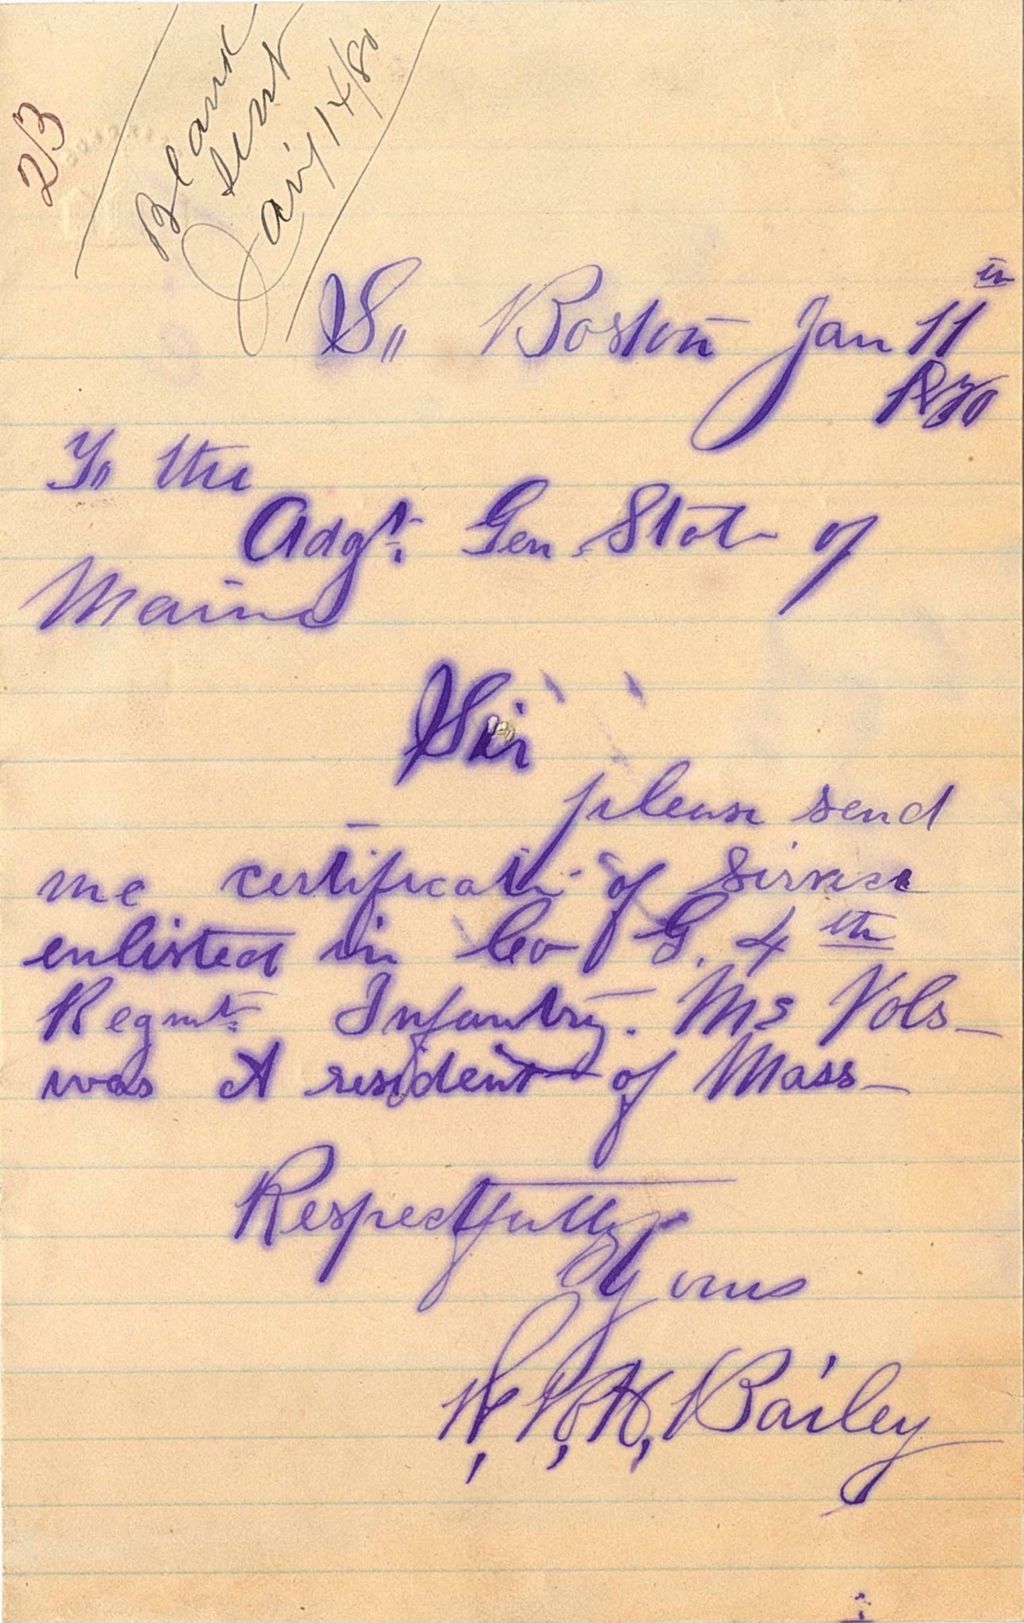 23
Blank
sent
Jany 14/80
So Boston Jan 11th
1880
To the
Adgt. Gen. State of
Maine
Sir
please send
me certificate of Servise
enlisted in Co G. 4th
Regmt. Infantry. Me Vols
was A resident of Mass
Respectfully
Yours
H, Bailey